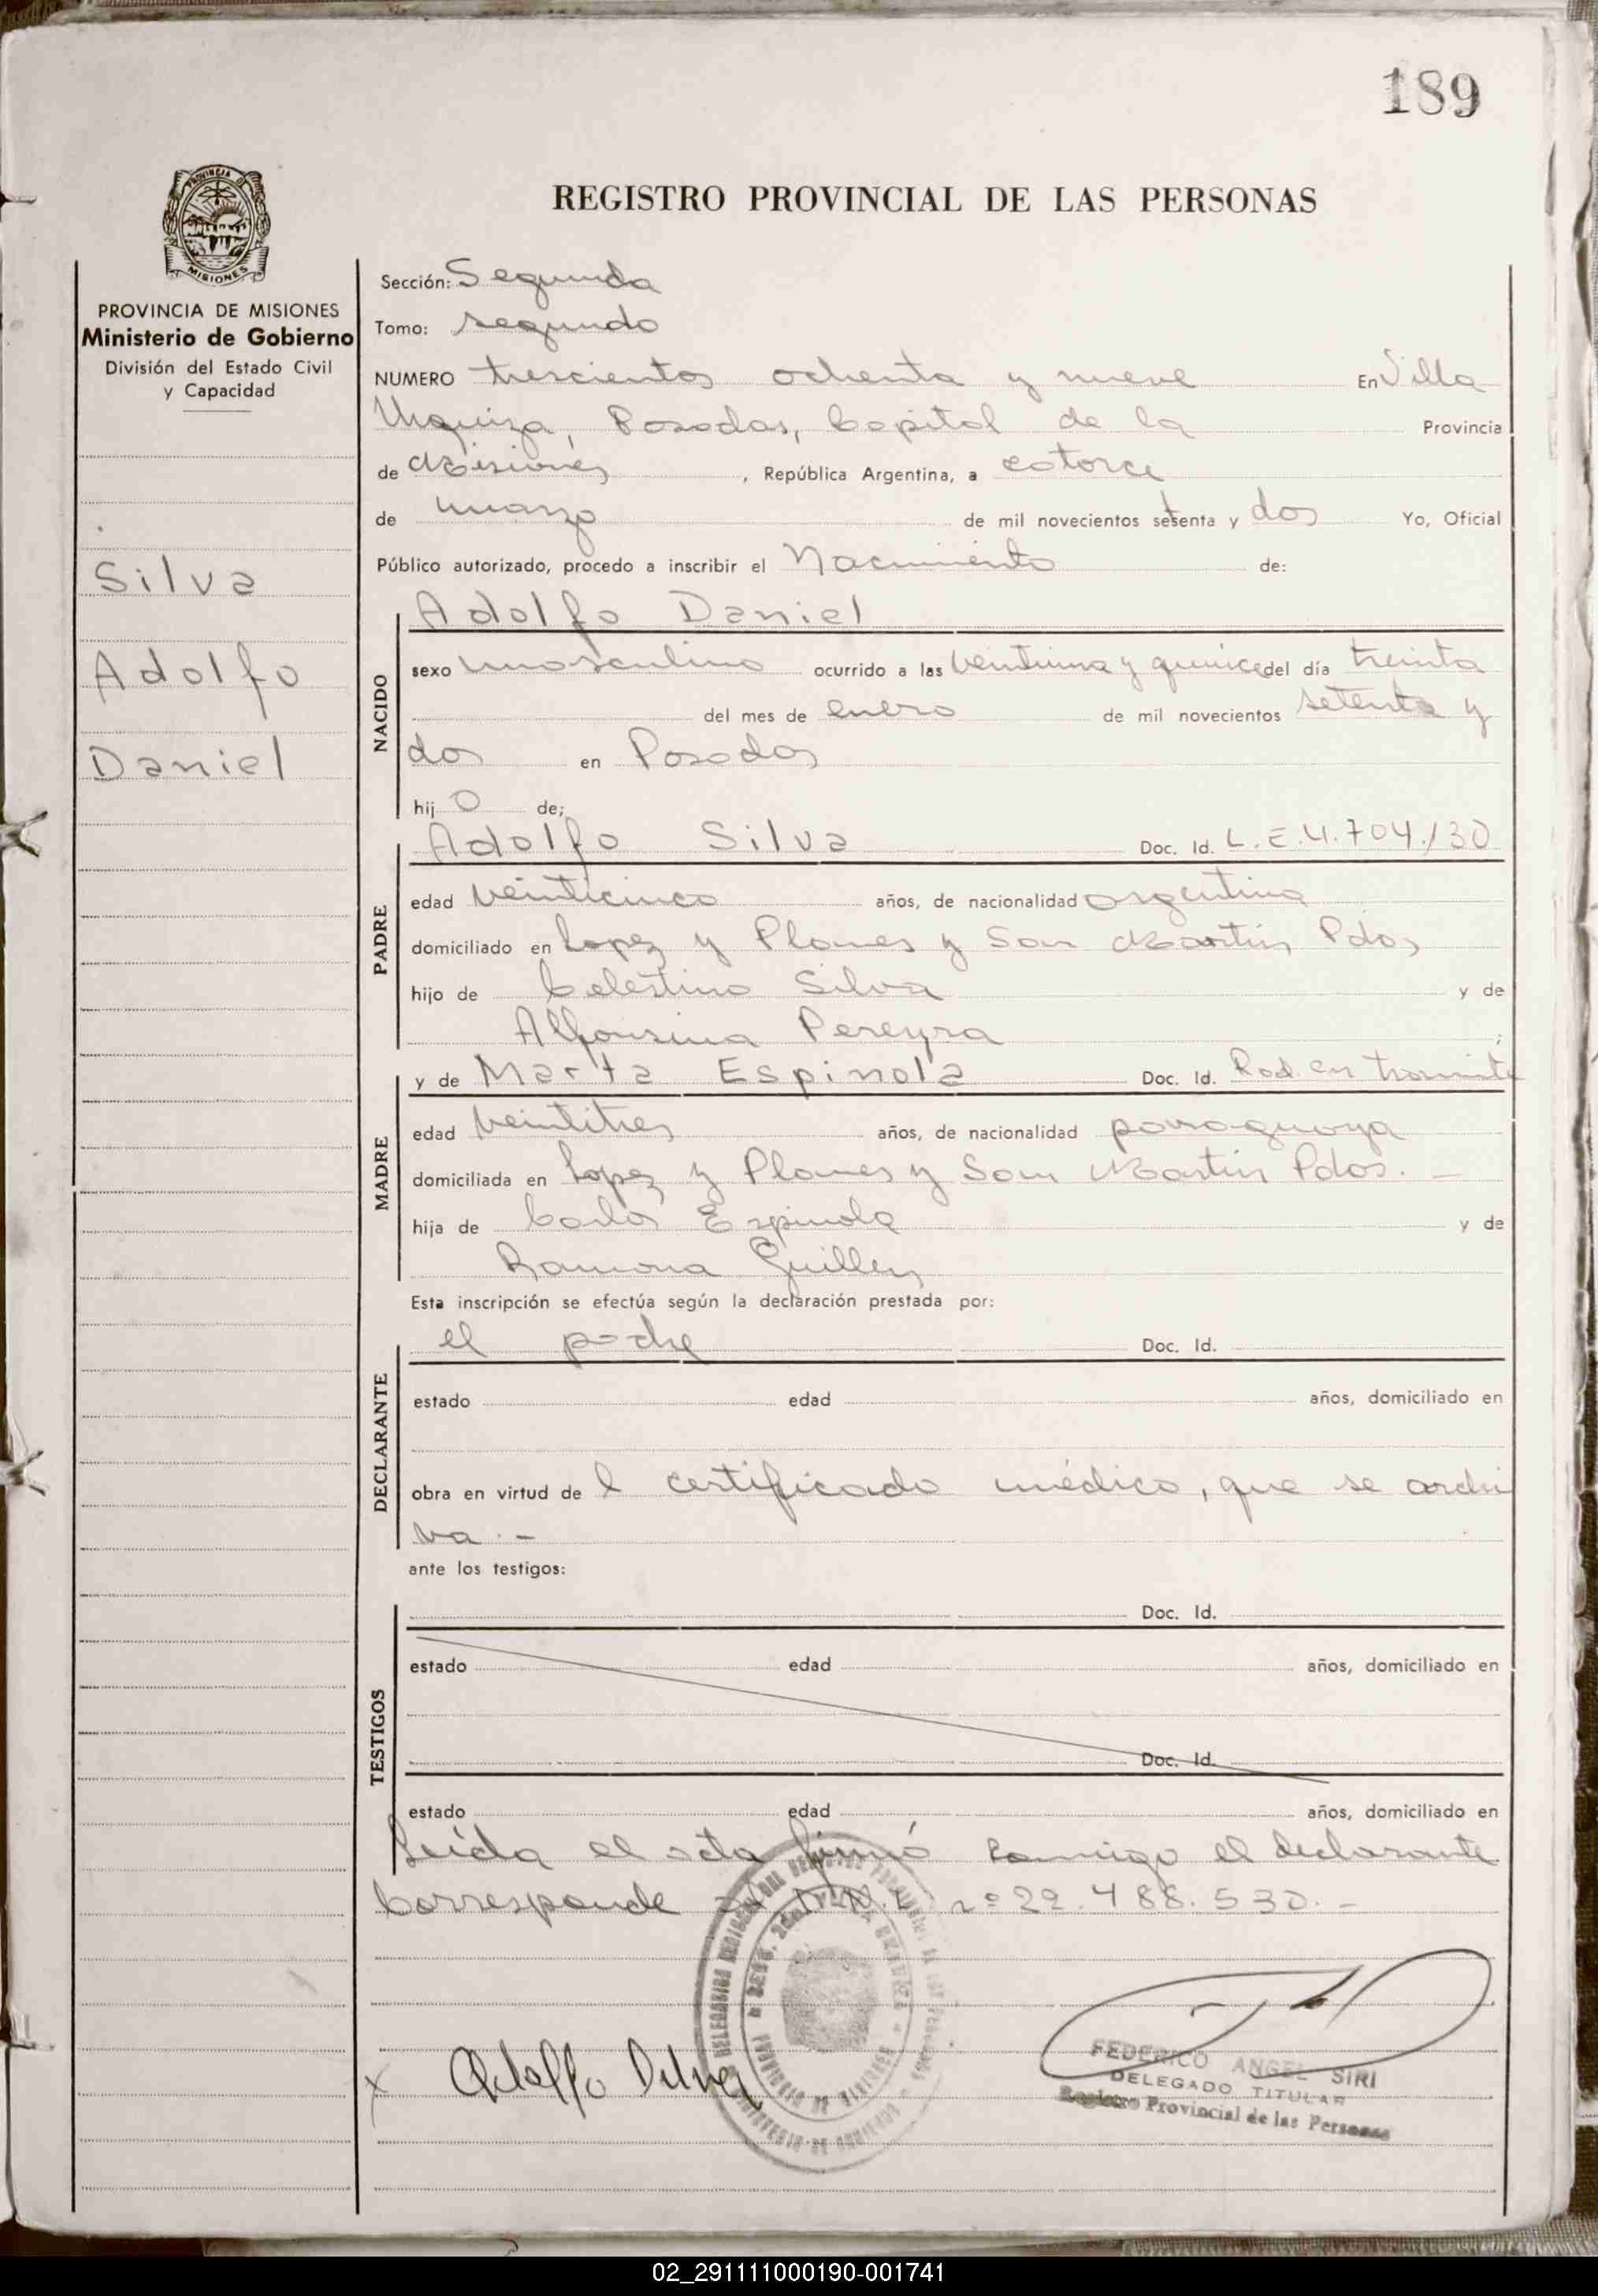 189
PROVINCIA DE
MISIONES
REGISTRO PROVINCIAL DE LAS PERSONAS
PROVINCIA DE MISIONES
Ministerio de Gobierno
División del Estado Civil
y Capacidad
Silva
Adolfo
Daniel
Sección: Segunda
Tomo: segundo
NUMERO trescientos ochenta y nueve En Villa
Urquiza, Posadas, Capital de la Provincia
de Misiones, República Argentina, a catorce
de marzo de mil novecientos setenta y dos Yo, Oficial
Público autorizado, procedo a inscribir el Nacimiento de:
NACIDO
Adolfo Daniel
sexo masculino ocurrido a las veintiuna y quince del día treinta
del mes de enero de mil novecientos setenta y
dos en Posadas
hij o de;
PADRE
Adolfo Silva Doc. Id. L.E.
edad veinticinco años, de nacionalidad argentina
domiciliado en Lopez y Planes y San Martin Pdas
hijo de Celestino Silva y de
Alfonsina Pereyra ;
MADRE
y de Marta Espinola Doc. Id. Rad. en tramite
edad veintitres años, de nacionalidad paraguaya
domiciliada en Lopez y Planes y San Martin Pdas. -
hija de Carlos Espinola y de
Ramona Guillen
Esta inscripción se efectúa según la declaración prestada por:
DECLARANTE
el padre Doc. Id.
estado edad años, domiciliado en
obra en virtud de l certificado médico, que se archi
va. -
ante los testigos:
TESTIGOS
Doc. Id.
estado edad años, domiciliado en
Doc. Id.
estado edad años, domiciliado en
Leída el acta firmó conmigo el declarante
Corresponde nº 22.488.530. -
Adolfo Silva
FEDERICO ANGEL SIRI
DELEGADO TITULAR
Registro Provincial de las Personas
02_291111000190-001741